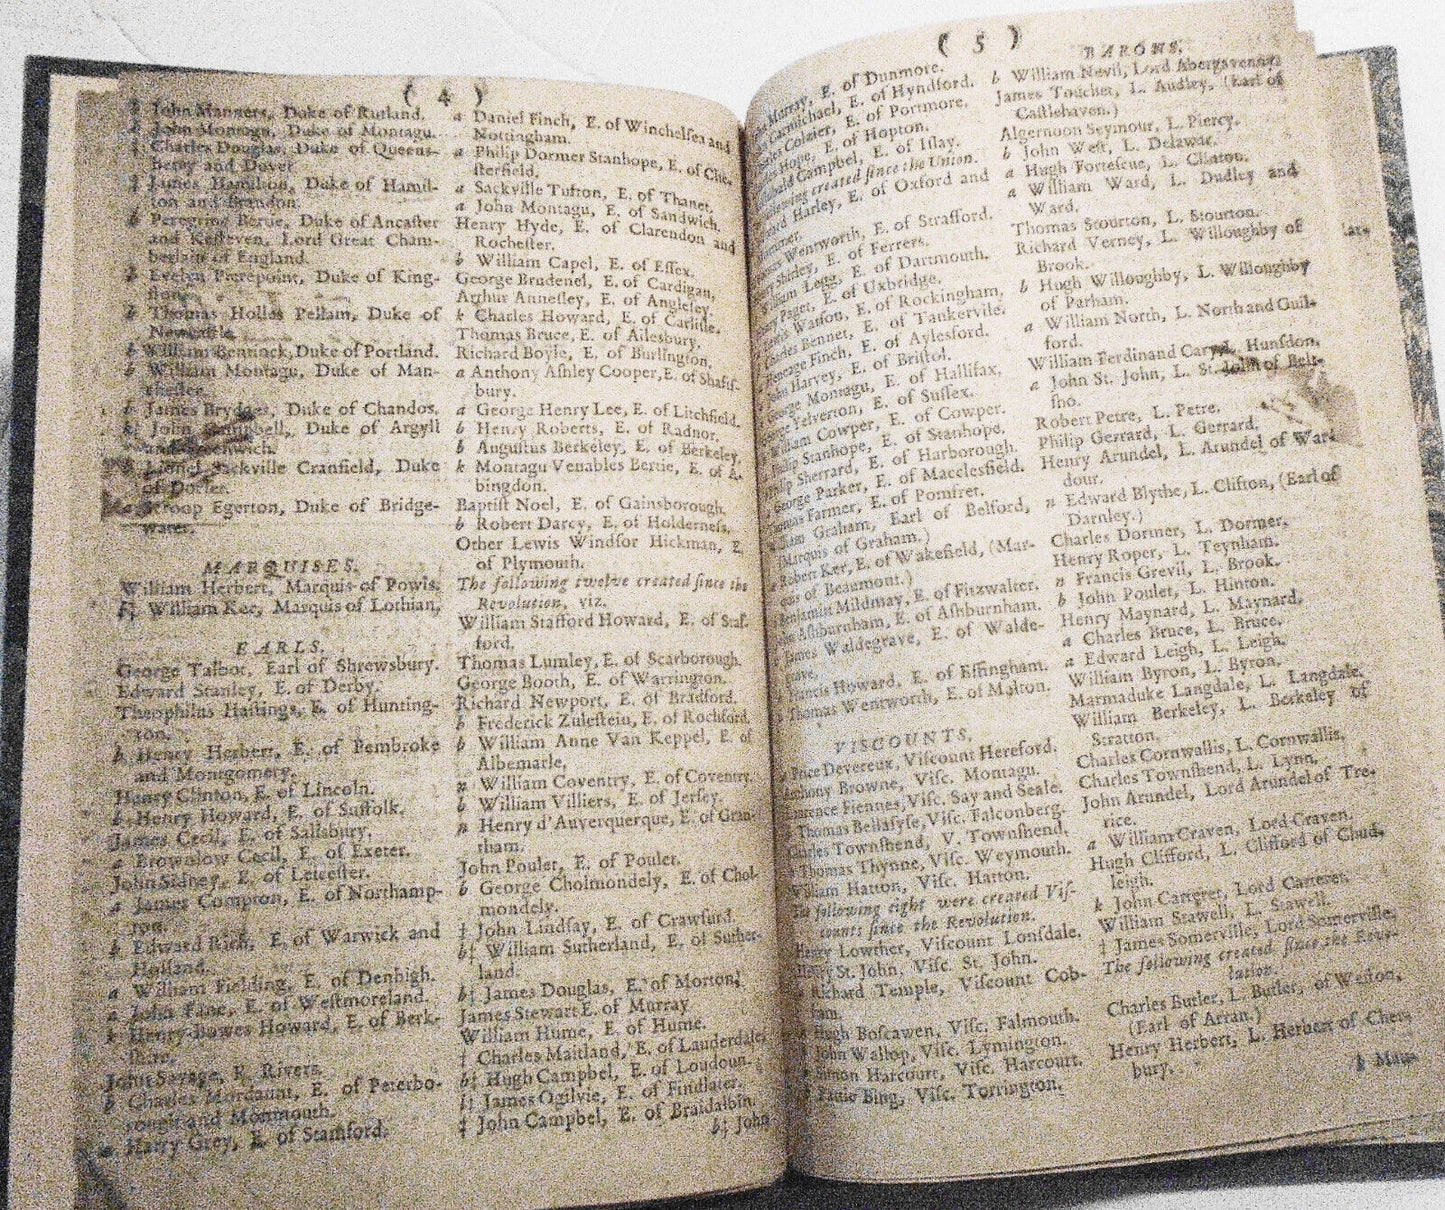 ( 4 )
John Manners, Duke of Rutland.
John Montagu, Duke of Montagu.
Charles Douglas, Duke of Queens-
berry and Dover
James Hamilton, Duke of Hamil-
ton and Brandon.
b Peregrine Bertie, Duke of Ancaster
and Kesteven, Lord Great Cham-
berlain of England.
Evelyn Pierepoint, Duke of King-
ston.
b Thomas Holles Pellam, Duke of
Newcastle.
b William Bentinck, Duke of Portland.
b William Montagu, Duke of Man-
chester.
b James Brydges, Duke of Chandos.
John Campbell, Duke of Argyll
and Greenwich.
Lionel Sackville Cranfield, Duke
of Dorset.
Scroop Egerton, Duke of Bridge-
water.
MARQUISES.
William Herbert, Marquis of Powis.
William Ker, Marquis of Lothian,
EARLS.
George Talbot, Earl of Shrewsbury.
Edward Stanley, E. of Derby.
Theophilus Hastings, E. of Hunting-
ton.
b Henry Herbert, E. of Pembroke
and Montgomery.
Henry Clinton, E. of Lincoln.
b Henry Howard, E. of Suffolk.
James Cecil, E. of Salisbury.
a Brownlow Cecil, E. of Exeter.
John Sidney, E. of Leicester.
a James Compton, E. of Northamp-
ton.
b Edward Rich, E. of Warwick and
Holland.
a William Fielding, E. of Denbigh.
a John Fane, E. of Westmoreland.
b Henry Bowes Howard, E. of Berk-
shire.
John Savage, E. Rivers.
b Charles Mordaunt, E. of Peterbo-
rough and Monmouth.
a Harry Grey, E. of Stamford.
a Daniel Finch, E. of Winchelsea and
Nottingham.
a Philip Dormer Stanhope, E. of Che-
sterfield.
a Sackville Tufton, E. of Thanet.
a John Montagu, E. of Sandwich.
Henry Hyde, E. of Clarendon and
Rochester.
b William Capel, E. of Essex.
George Brudenel, E. of Cardigan,
Arthur Annesley, E. of Anglesey.
k Charles Howard, E. of Carlisle.
Thomas Bruce, E. of Ailesbury.
Richard Boyle, E. of Burlington,
a Anthony Ashley Cooper, E. of Shafts-
bury.
a George Henry Lee, E. of Litchfield.
b Henry Roberts, E. of Radnor.
b Augustus Berkeley, E. of Berkeley.
k Montagu Venables Bertie, E. of A-
bingdon.
Baptist Noel, E. of Gainsborough.
b Robert Darcy, E. of Holderness,
Other Lewis Windsor Hickman, E.
of Plymouth.
The following twelve created since the
Revolution, viz.
William Stafford Howard, E. of Staf-
ford,
Thomas Lumley, E. of Scarborough.
George Booth, E. of Warrington.
Richard Newport, E. of Bradford.
b Frederick Zulestein, E. of Rochford.
b William Anne Van Keppel, E. of
Albemarle,
n William Coventry, E. of Coventry.
b William Villiers, E. of Jersey.
n Henry d'Auverquerque, E. of Gran-
tham.
John Poulet, E. of Poulet.
b George Cholmondely, E. of Chol-
mondely.
‡ John Lindsay, E. of Crawfurd.
b‡ William Sutherland, E. of Suther-
land.
b‡ James Douglas, E. of Morton,
James Stewart E. of Murray
William Hume, E. of Hume.
‡ Charles Maitland, E. of Lauderdale
b‡ Hugh Campbel, E. of Loudoun.
b‡ James Ogilvie, E. of Findlater.
‡ John Campbel, E. of Braidalbin.
b‡ John
( 5 )
Murray, E. of Dunmore.
Carmichael, E. of Hyndford.
Colaier, E. of Portmore.
Hope, E. of Hopton.
Campbel, E. of Islay.
following created since the Union.
Harley, E. of Oxford and
Mortimer.
Wentworth, E. of Strafford.
Shirley, E. of Ferrers.
William Legg, E. of Dartmouth.
Henry Paget, E. of Uxbridge.
Watson, E. of Rockingham,
Charles Bennet, E. of Tankervile.
Heneage Finch, E. of Aylesford.
John Harvey, E. of Bristol.
George Montagu, E. of Hallifax,
George Yelverton, E. of Sussex.
William Cowper, E. of Cowper.
Philip Stanhope, E. of Stanhope.
Philip Sherrard, E. of Harborough.
George Parker, E. of Macclesfield.
Thomas Farmer, E. of Pomfret.
William Graham, Earl of Belford,
(Marquis of Graham.)
Robert Ker, E. of Wakefield, (Mar-
quis of Beaumont.)
Benjamin Mildmay, E. of Fitzwalter.
John Ashburnham, E. of Ashburnham.
James Waldegrave, E. of Walde-
grave,
Francis Howard, E. of Effingham.
Thomas Wentworth, E. of Malton.
VISCOUNTS,
Price Devereux, Viscount Hereford.
Anthony Browne, Visc. Montagu.
Laurence Fiennes, Visc. Say and Seale.
Thomas Bellasyse, Visc. Falconberg.
Charles Townshend, V. Townshend.
Thomas Thynne, Visc. Weymouth.
William Hatton, Visc. Hatton.
The following eight were created Vis-
counts since the Revolution.
Henry Lowther, Viscount Lonsdale.
Henry St. John, Visc. St. John.
Richard Temple, Viscount Cob-
ham.
Hugh Boscawen, Visc. Falmouth.
John Wallop, Visc. Lymington.
Simon Harcourt, Visc. Harcourt.
Pattie Bing, Visc. Torrington.
BARONS.
b William Nevil, Lord Abergavenny
James Touchet, L. Audley, (Earl of
Castlehaven.)
Algernoon Seymour, L. Piercy.
b John West, L. Delawar.
a Hugh Fortescue, L. Clinton.
a William Ward, L. Dudley and
Ward.
Thomas Stourton, L. Stourton.
Richard Verney, L. Willoughby of
Brook.
b Hugh Willoughby, L. Willoughby
of Parham.
a William North, L. North and Guil-
ford.
William Ferdinand Carey, L. Hunsdon.
a John St. John, L. St. John of Belt-
sho.
Robert Petre, L. Petre.
Philip Gerrard, L. Gerrard.
Henry Arundel, L. Arundel of War-
dour.
n Edward Blythe, L. Clifton, (Earl of
Darnley.)
Charles Dormer, L. Dormer.
Henry Roper, L. Teynham.
n Francis Grevil, L. Brook.
b John Poulet, L. Hinton.
Henry Maynard, L. Maynard,
a Charles Bruce, L. Bruce.
a Edward Leigh, L. Leigh.
William Byron, L. Byron.
Marmaduke Langdale, L. Langdale,
William Berkeley, L. Berkeley of
Stratton.
Charles Cornwallis, L. Cornwallis.
Charles Townshend, L. Lynn.
John Arundel, Lord Arundel of Tre-
rice.
a William Craven, Lord Craven.
Hugh Clifford, L. Clifford of Chud-
leigh.
k John Carteret, Lord Carteret.
William Stawell, L. Stawell.
‡ James Somerville, Lord Somerville.
The following created since the Revo-
lution.
Charles Butler, L. Butler, of Weston,
(Earl of Arran.)
Henry Herbert, L. Herbert of Cher-
bury.
b Mau-